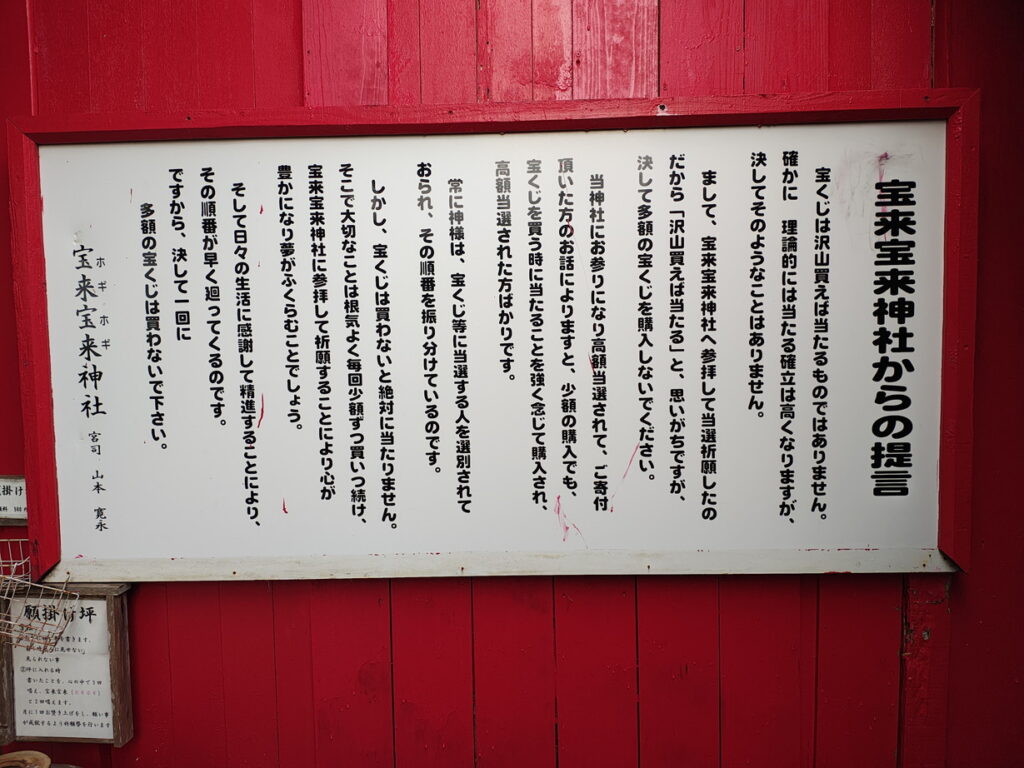 宝来宝来神社からの提言
宝くじは沢山買えば当たるものではありません。
確かに　理論的には当たる確立は高くなりますが、
決してそのようなことはありません。
まして、宝来宝来神社へ参拝して当選祈願したの
だから「沢山買えば当たる」と、思いがちですが、
決して多額の宝くじを購入しないでください。
当神社にお参りになり高額当選されて、ご寄付
頂いた方のお話によりますと、少額の購入でも、
宝くじを買う時に当たることを強く念じて購入され、
高額当選された方ばかりです。
常に神様は、宝くじ等に当選する人を選別されて
おられ、その順番を振り分けているのです。
しかし、宝くじは買わないと絶対に当たりません。
そこで大切なことは根気よく毎回少額ずつ買いつ続け、
宝来宝来神社に参拝して祈願することにより心が
豊かになり夢がふくらむことでしょう。
そして日々の生活に感謝して精進することにより、
その順番が早く廻ってくるのです。
ですから、決して一回に
多額の宝くじは買わないで下さい。
ホギホギ
宝来宝来神社　宮司　山本　寛永
願掛け坪
見られない事
②坪に入れる時
書いたことを、心の中で3回
唱え、宝来宝来
と2回唱えます。
月に1回お焚き上げをし、願い事
が成就するよう祈願祭を行います